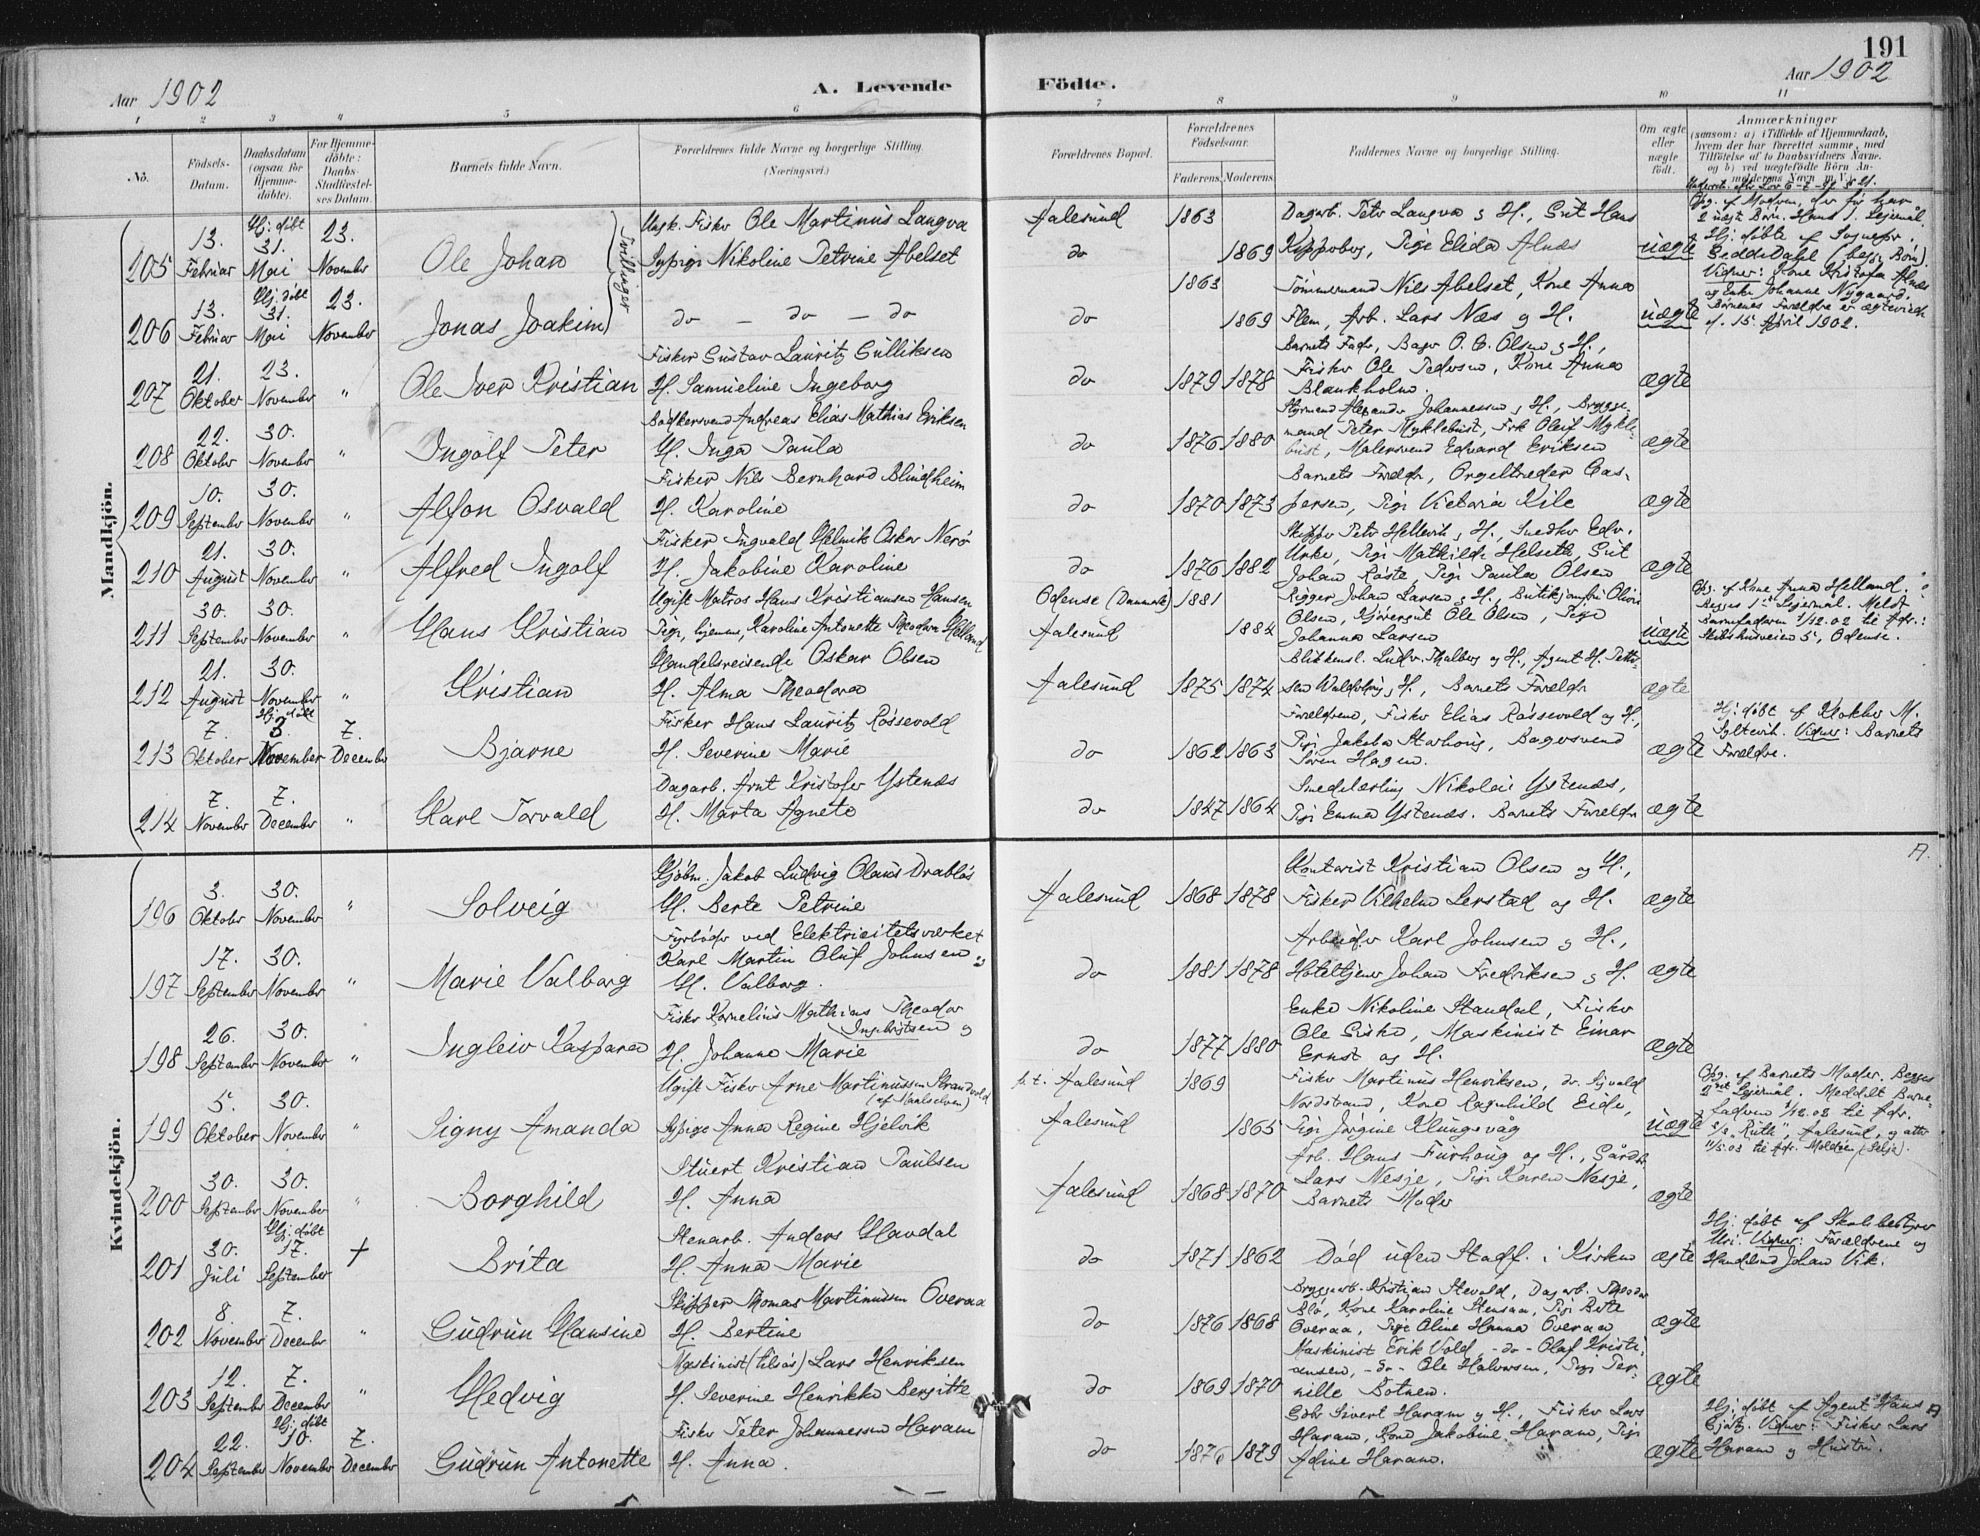 191
Aar 1902
A. Levende
Födte.
Aar 1902
1 2 3 4 5 6 7 8 9 10 11
No.
Födsels-Datum.
Daabsdatum (ogsaa for Hjemme-döbte).
For Hjemme-döbte: Daabs-Stadfæstel-ses Datum.
Barnets fulde Navn.
Forældrenes fulde Navne og borgerlige Stilling. (Næringsvei.)
Forældrenes Bopæl.
Forældrenes Födselsaar.
Faderens. Moderens.
Faddernes Navne og borgerlige Stilling.
Om ægte eller uægte födt.
Anmærkninger
(saasom: a) i Tilfælde af Hjemmedaab, hvem der har forrettet samme, med Tilföielse af to Daabsvidners Navne. og b) ved uægtefödte Börn An-melderens Navn m. V.)
Mandkjön.
205 13. Februar Hj. döbt 31. Mai 23. November Ole Johan
Tvillinger
Ungk. Fisker Ole Martinus Langva
Sypigi Nikoline Petrine Abelset
Aalesund 1863
do 1869
Dagarb. Peter Langva & H., Gut Hans
Pige Elida Alnes
uægte
Opg. af Moderen, der før har
Hj. døbte af Sognepr.
BeddeDahl (begge Börn).
Vidner: Kone Kristofa Alnes
og Enke Johanne Nygaard.
Børnenes Forældre er ægteviede
d. 15. April 1902.
206 13. Februar Hj. döbt 31. Mai 23. November Jonas Joakim
do — do — do
do 1863 1869
Tømmermand Nils Abelset, Kone Anna
Flem, Arb. Lars Næs og H.
uægte
207 21. Oktober 23. November " Ole Iver Kristian
Fisker Gustav Lauritz Gulliksen
H. Samueline Ingeborg
do 1879 1878
Barnets Fader, Bager O. C. Olsen & H.,
Fisker Ole Pedersen, Kone Anna
Blankholm.
ægte
208 22. Oktober 30. November " Ingolf Peter
Bødkersvend Andreas Elias Mathias Eriksen
H. Inga Paula
do 1876 1880
Styrmand Alexander Johannessen & H., Brygge-
mand Peter Myklebust, Frk Oluf Mykle-
bust, Malersvend Edvard Eriksen
ægte
209 10. September 30. November " Alfon Osvald
Fisker Nils Bernhard Blindheim
H. Karoline
do 1870 1873
Barnets Foreldre, Orgeltræder Cas-
persen, Pige Victoria Kile
ægte
210 21. August 30. November " Alfred Ingolf
Fisker Ingvald Helmik Oskar Nerø
H. Jakobine Karoline
do 1876 1882
Skipper Peter Hellevik & H., Snedker Edv.
Urke, Pige Mathilde Helseth, Gut
Johan Røste, Pige Paula Olsen
ægte
211 30. September 30. November " Hans Kristian
Ugift Matros Hans Kristiansen Hansen
Pige, hjemme, Karoline Antonette Theodora Helland
Odense (Danmark) 1881
Aalesund 1884
Rigger Johan Larsen & H., Butikjomfru Olivia
Olsen, Kjøregut Ole Olsen, Pige
Johanna Larsen
uægte
Opg. af Kone Anna Helland.
Begges 1ste Lejermål. Meldt
Barnefaderen 1/12.02 til Adr.:
Skibshusveien 5, Odense.
212 21. August 30. November " Kristian
Handelsreisende Oskar Olsen
H. Alma Theodora
Aalesund 1875 1874
Blikkensl. Ludv. Thalberg og H., Agent H. Petter-
sen & H., Barnets Foreldre
ægte
213 7. Oktober Hj. døbt 3. November 7. December Bjarne
Fisker Hans Lauritz Røssevold
H. Severine Marie
do 1862 1863
Foreldrene, Fisker Elias Røssevold og H.,
Pige Jakoba Starhoug, Bagersvend
Søren Hagen.
ægte
Hj. døbt af Klokker M.
Syltevik. Vidner: Barnets
Foreldre.
214 7. November 7. December " Karl Torvald
Dagarb. Arnt Kristofer Ystenes
H. Marta Agnete
do 1847 1864
Smedelærling Nikolai Ystenes,
Pige Emma Ystenes. Barnets Foreldre
ægte
Kvindekjön.
196 3. Oktober 30. November " Solveig
Kjøbm. Jakob Ludvig Olaus Drabløs
H. Berte Petrine
Aalesund 1868 1878
Kontorist Kristian Olsen og H.,
Fisker Vilhelm Lerstad og H.
ægte
197 17. September 30. November " Marie Valborg
Fyrbøder ved Elektricitetsværket
Karl Martin Oluf Johnsen og
H. Valborg.
do 1881 1878
Arbeider Karl Johnsen & H.,
Hoteltjener Johan Fredriksen & H.
ægte
198 26. September 30. November " Ingleiv Kaspara
Fisker Kornelius Mathias Theodor
Ingebrigtsen og
H. Johanne Marie
do 1877 1880
Enke Nikoline Standal, Fisker
Ole Giske, Maskinist Einar
Ernst og H.
ægte
199 5. Oktober 30. November " Signy Amanda
Ugift Fisker Arne Martinussen Strandvold
(af Maalselven)
Sypige Anna Regine Hjelvik
p.t. Aalesund 1869
Aalesund 1865
Fisker Martinus Henriksen, do. Sjvald
Nordstrand, Kone Ragnhild Eide,
Pige Jørgine Klungsvåg
uægte
Opg. af Barnets Moder. Begges
2det Lejermål. Meddelt Barne-
faderen til Adr.
"Ruth", Aalesund, og atter
200 30. September 30. November " Borghild
Stuert Kristian Paulsen
H. Anna
Aalesund 1868 1870
Arb. Hans Furhoug og H., Gårdbr.
Lars Nesje, Pige Karen Nesje,
Barnets Moder
ægte
201 30. Juli Hj. døbt 17. September + Brita
Stenarb. Anders Havdal
H. Anna Marie
do 1871 1862
Død uden Stadf. i Kirken
ægte
Hj. døbt af Skolebestyrer
Uri. Vidner: Forældrene og
Handelsmd Johan Vik.
202 8. November 7. December " Gudrun Hansine
Skipper Thomas Martinussen Overaa
H. Bertine
do 1876 1868
Bryggearb. Kristian Stevold, Dagarb. Theodor
Blø, Kone Karoline Stensaa, Pige Berte
Overaa, Pige Oline Hanna Overaa
ægte
203 12. September 7. December " Hedvig
Maskinist (tilsøs) Lars Henriksen
H. Severine Henrikke Bergitte
do 1869 1870
Maskinist Erik Vold, -do- Olaf Kristi-
ansen, -do- Ole Halvorsen, Pige Per-
nille Botnen.
ægte
204 22. September Hj. døbt 10. November 7. December Gudrun Antonette
Fisker Peter Johannessen Haram
H. Anna.
do 1876 1879
Gbr Sivert Haram og H., Fisker Lars
Haram, Kone Jakobine Haram, Pige
Adine Haram.
ægte
Hj. døbt af Agent Hans
Vidner: Fisker Lars
Haram og Hustru.